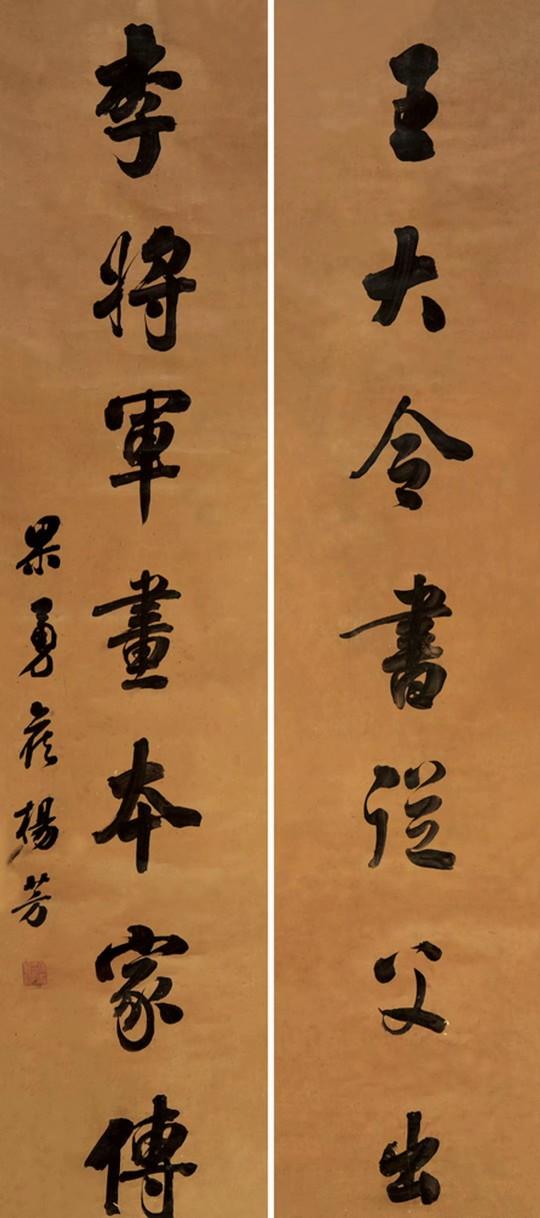 王大令書從父出
李將軍畫本家傳
果勇侯楊芳